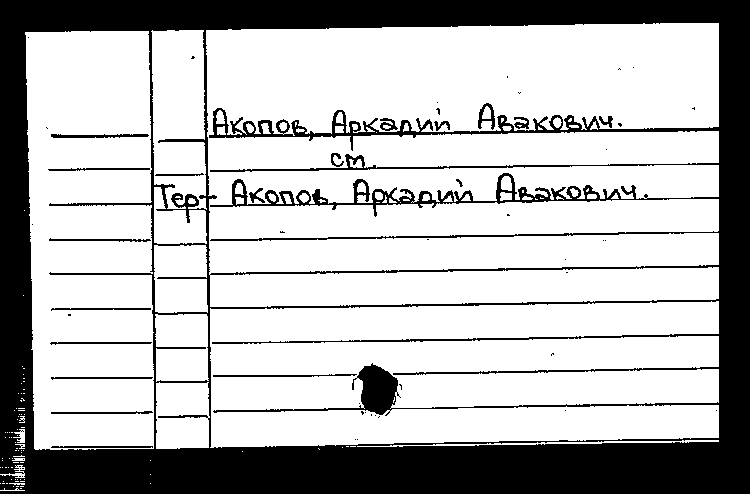 Акопов, Аркадий Авакович.
см.
Тер-Акопов, Аркадий Авакович.